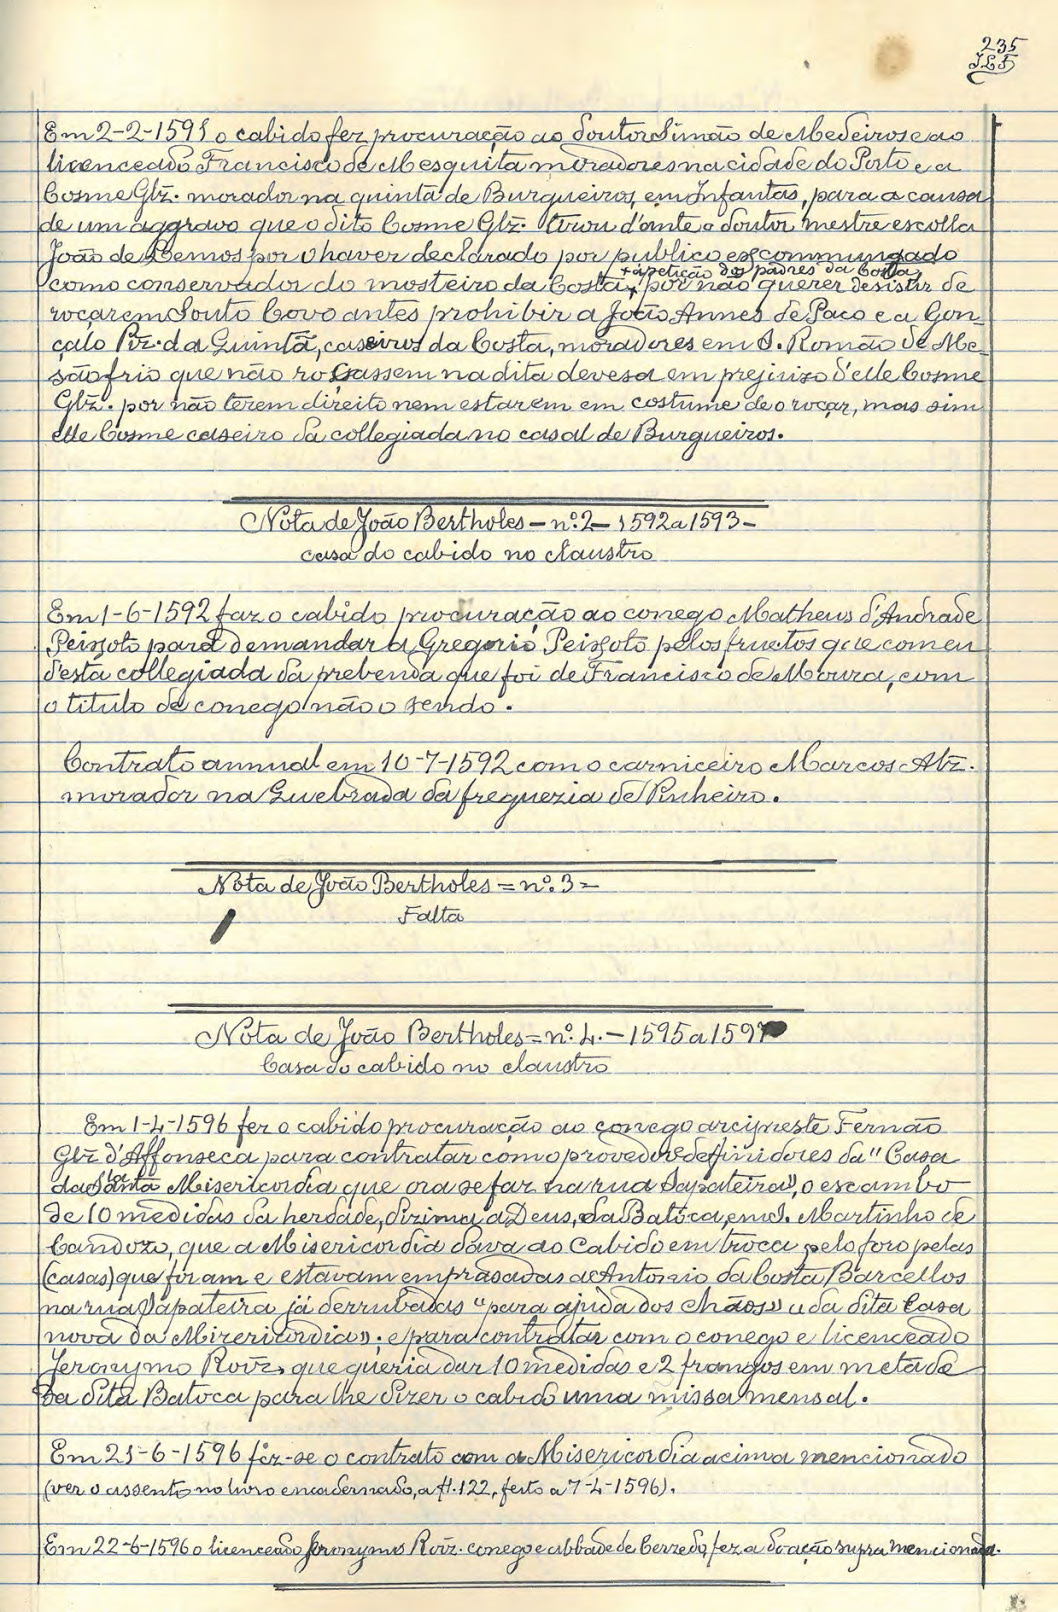 235
Em 2-2-1591 o cabido fez procuração ao doutor Simão de Medeiros e ao
licenceado Francisco de Mesquita moradores na cidade do Porto e a
Cosme Glz. morador na quintã de Burgueiros, em Infantas, para a causa
de um aggravo que o dito Cosme Glz. tirou d'ante o doutor mestre escolla
João de Lemos por o haver declarado por publico escommungado
+ á petição dos padres da Costa,
como conservador do mosteiro da Costa, + por não querer desistir de
roçarem Souto Covo antes prohibir a João Annes de Paço e a Gon-
çalo Piz. da Quintã, caseiros da Costa, moradores em S. Romão de Me-
sãofrio que não rossassem na dita devesa em prejuiso d'elle Cosme
Glz. por não terem direito nem estarem em costume de o roçar, mas sim
elle Cosme caseiro da collegiada no casal de Burgueiros.
Nota de João Bertholes - nº. 2 - 1592 a 1593 -
casa do cabido no claustro
Em 1-6-1592 faz o cabido procuração ao conego Matheus d'Andrade
Peixoto para demandar a Gregorio Peixoto pelos fructos que comeu
d'esta collegiada da prebenda que foi de Francisco de Moura, com
o titulo de conego não o sendo.
Contrato annual em 10-7-1592 com o carniceiro Marcos Alz.
morador na Quebrada da freguezia de Pinheiro.
Nota de João Bertholes = nº. 3 =
Falta
Nota de João Bertholes = nº. 4. - 1595 a 1597
Casa do cabido no claustro
Em 1-4-1596 fez o cabido procuração ao conego arcipreste Fernão
Glz d'Affonseca para contratar com o provedor e definidores da "Casa
da Santa Misericordia que ora se faz na rua Sapateira", o escambo
de 10 medidas da herdade, dizima a Deus, da Batoca, em S. Martinho de
Candozo, que a Misericordia dava ao Cabido em troca pelo foro pelas
(casas) que foram e estavam emprasadas a Antonio da Costa Barcellos
na rua Sapateira já derrubadas "para ajuda dos chãos" da dita Casa
nova da Mizericordia"; e para contratar com o conego e licenceado
Jeronymo Roiz, que queria dar 10 medidas e 2 frangos em metade
da dita Batoca para lhe dizer o cabido uma missa mensal.
Em 21-6-1596 fez-se o contrato com a Misericordia acima mencionado
(ver o assento no livro encadernado, a fl. 122, feito a 7-4-1596).
Em 22-6-1596 o licenceado Jeronymo Roiz. conego e abbade de Cerzedo, fez a doação supra mencionada.